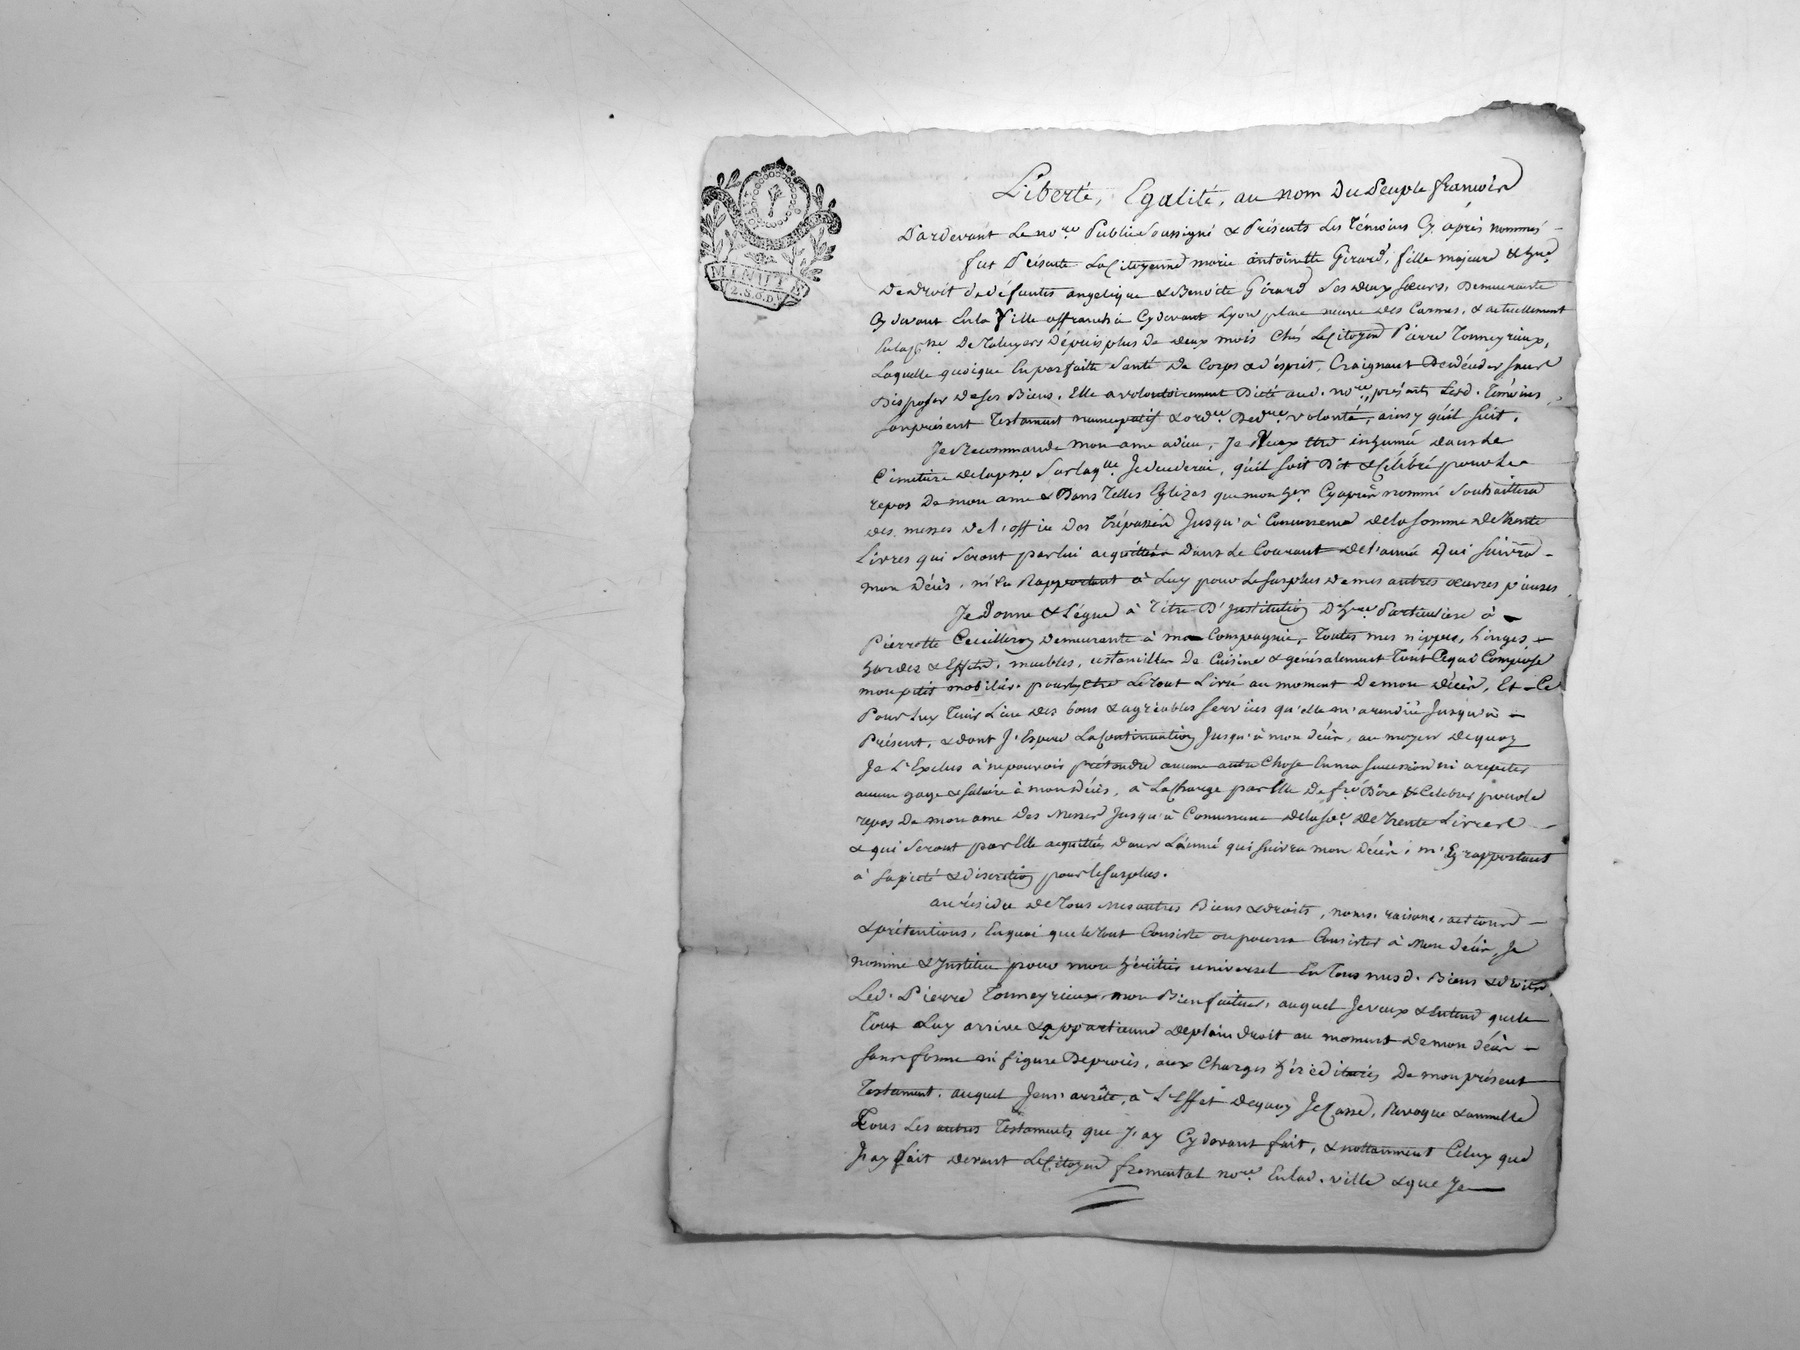 MINUTE
2. S. 6. D.
Liberté, Egalité, au nom Du Peuple francois
Pardevant Le no.re Public Soussigné & Présents Les Témoins Cy après nommés
fut Présente La Citoyenne marie antoinette Girard, fille majeure &
De droit de défuntes angelique & Benoite Girard Ses deux soeurs, Demeurante
Cy devant En la Ville affranchie Cydevant Lyon place neuve des Carmes, & actuellement
En la p.sse De Taluyers Depuis plus De deux mois Chés Le Citoyen Pierre Tonneyrieux,
Laquelle quoique En parfaite Santé De Corps & d'ésprit, Craignant De décéder sans
Disposer De ses Biens, Elle a volontairement Dicté aud. no.re présents Lesd. Témoins
Son présent Testament nuncupatif & ord.re De d.re volonté, ainsy qu'il suit.
Je Recommande mon ame a dieu, Je Veux être inhumée dans Le
Cimetiere de la p.sse Sur laq.lle Je décederai, qu'il soit Dit & Célébré pour Le
repos De mon ame & Dans Telles Eglizes que mon her. Cy après nommé Souhaittera
des messes de l'office Des Trépassés Jusqu'à Concurrence de la somme de trente
Livres qui Seront par lui acquittées Dans Le Courant de l'année qui suivra
mon Décès, m'en Rapportant à Luy pour Le surplus De mes autres oeuvres pieuses
Je Donne & Légue à Titre D'Institution D'h.re Particuliere à
Pierrette Demeurante à ma Compagnie, Toutes mes nippes, Linges,
hardes & Effets, meubles, ustancilles De Cuisine & généralement Tout Ce qui Compose
mon petit mobilier pour Le tout Livré au moment De mon décès, Et Ce
Pour Luy Tenir Lieu Des bons & agréables Services qu'elle m'a rendû Jusqu'à
Présent, & dont J'Espere La Continuation Jusqu'à mon décès, au moyen De quoy
Je L'Exclus à ne pouvoir prétendre aucune autre Chose En ma succession ni a repeter
aucun gage & salaire à mon décès, à La Charge par Elle De fre. Dire & Celebrer pour le
repos De mon ame Des Messes Jusqu'à Concurrence de la so.e De trente Livres
& qui Seront par Elle acquittés dans L'année qui suivra mon décès, m'En rapportant
à sa pieté & discretion pour le surplus.
au résidu de tous mes autres Biens & droits, noms, raisons, actions
& prétentions, En quoi que le tout Consiste ou pourra Consister à mon décès, Je
nomme & Institue pour mon héritier universel En Tous mesd. Biens & droits
Led. Pierre Tonneyrieux mon Bienfaiteur, auquel Je veux & Entend que le
Tout Luy arrive & appartienne de plain droit au moment De mon décès
sans forme ni figure De procès, aux Charges héréditaires De mon présent
Testament, auquel Je m'arrête, à L'Effet De quoy Je Casse, Revoque & annulle
Tous Les autres Testaments que J'ay Cydevant fait, & nottamment Celuy que
J'ay fait devant Le Citoyen fromental no.re En lad. ville & que Je